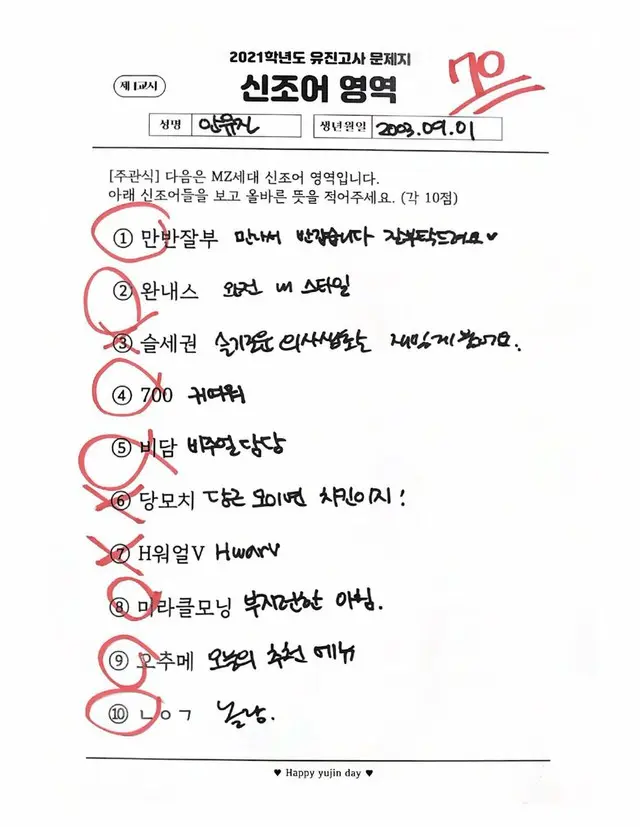 2021학년도 유진고사 문제지
제1교시
신조어 영역
70
성명 안유진 생년월일 2003.09.01
[주관식] 다음은 MZ세대 신조어 영역입니다.
아래 신조어들을 보고 올바른 뜻을 적어주세요. (각 10점)
① 만반잘부 만나서 반갑습니다 잘부탁드려요♥
② 완내스 완전 내 스타일
③ 슬세권 슬기로운 의사생활은 재밌게 봤어요.
④ 700 귀여워
⑤ 비담 비주얼담당
⑥ 당모치 당근 모이면 치킨이지!
⑦ H워얼V Hwarv
⑧ 미라클모닝 부지런한 아침.
⑨ 오추메 오늘의 추천 메뉴
⑩ ㄴㅇㄱ 놀랑.
♥ Happy yujin day ♥